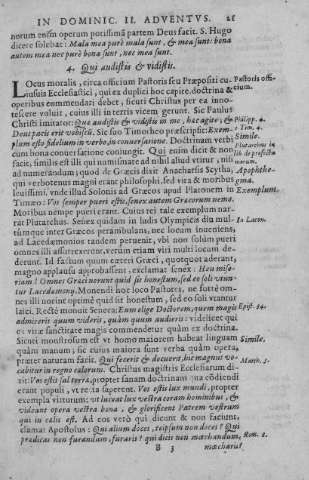 IN DOMINIC. II. ADVENTVS. 21
norum enim operum potissimā partem Deus facit. S. Hugo
dicere solebat: Mala mea purè mala sunt, & mea sunt: bona
autem mea nec purè bona sunt, nec mea sunt.
4. Qui audistis & vidistis.
LOcus moralis, circa officium Pastoris seu Præpositi cu-
iusuis Ecclesiastici, qui ex duplici hoc capite, doctrina &
operibus commendari debet, sicuti Christus per ea inno-
tescere voluit, cuius illi in terris vicem gerunt. Sic Paulus
Christi imitator: Quæ audistis & vidistis in me, hæc agite, &
Deus pacis erit vobiscū. Sic suo Timotheo præscripsit: Exem-
plum esto fidelium in verbo, in conuersatione. Doctrinam verbi
cum bona conuersatione coniungit. Qui enim dicit & non
facit, similis est illi qui numismate ad nihil aliud vtitur, nisi
ad numerandum; quod de Græcis dixit Anacharsis Scytha,
qui verbotenus magni erant philosophi, sed vita & moribus
leuissimi. vnde illud Solonis ad Græcos apud Platonem in
Timæo: Vos semper pueri estis, senex autem Græcorum nemo.
Motibus nempe pueri erant. Cuius rei tale exemplum nar-
rat Plutarchus. Senex quidam in ludis Olympicis diu mul-
tumque inter Græcos perambulans, nec locum inueniens,
ad Lacedæmonios tandem peruenit, vbi non solùm pueri
omnes illi assurrexerunt, verùm etiam viri multi locum de-
derunt. Id factum quùm cæteri Græci, quotquot aderant,
magno applausu approbassent, exclamat senex: Heu mise-
riam! Omnes Græci norunt quid sit honestum, sed eo soli vtun-
tur Lacedæmonij. Monendi hoc loco Pastores, ne fortè om-
nes illi norint optimè quid sit honestum, sed eo soli vtantur
laici. Rectè monuit Seneca: Eum elige Doctorem, quem magis
admireris quum videris, quàm quum audieris: videlicet qui
ex vitæ sanctitate magis commendetur quàm ex doctrina.
Sicuti monstrosum est vt homo maiorem habeat linguam
quàm manum; sic cuius maiora sunt verba quàm opera,
præter naturam facit. Qui fecerit & docuerit, hic magnus vo-
cabitur in regno cælorum. Christus magistris Ecclesiarum di-
xit: Vos estis sal terræ, propter sanam doctrinam qua cōdiendi
erant populi, vt recta saperent. Vos estis lux mundi, propter
exempla virtutum: vt luceat lux vestra coram hominibus, &
videant opera vestra bona, & glorificent Patrem vestrum
qui in cælis est. Ad eos verò qui dicunt & non faciunt,
clamat Apostolus: Qui alium doces, teipsum non doces? Qui
prædicas non furandum, furaris? qui dicis non mœchandum,
B 3 mœcharis?
Pastoris offi-
cium.
Philipp. 4.
1. Tim. 4.
Simile.
Plutarchus in
Apophthe-
gma.
Exemplum.
In Lacon.
Epist. 52.
Simile.
Matth. 5.
Rom. 2.